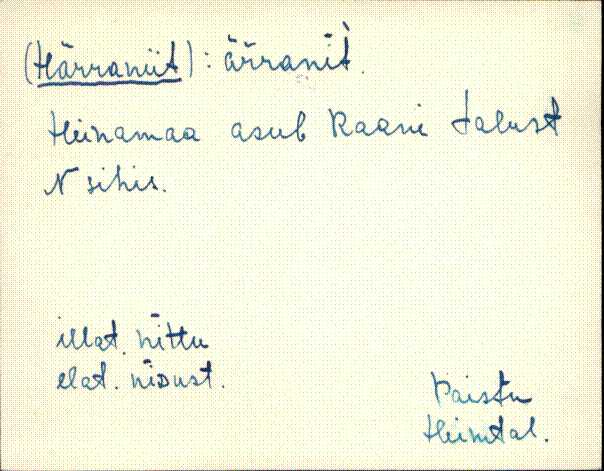 (Härraniit): ärranìt̀.
Heinamaa asub Kaani talust
N sihis.
illat. nīttu
elat. nīdust.
Paistu
Heimtal.